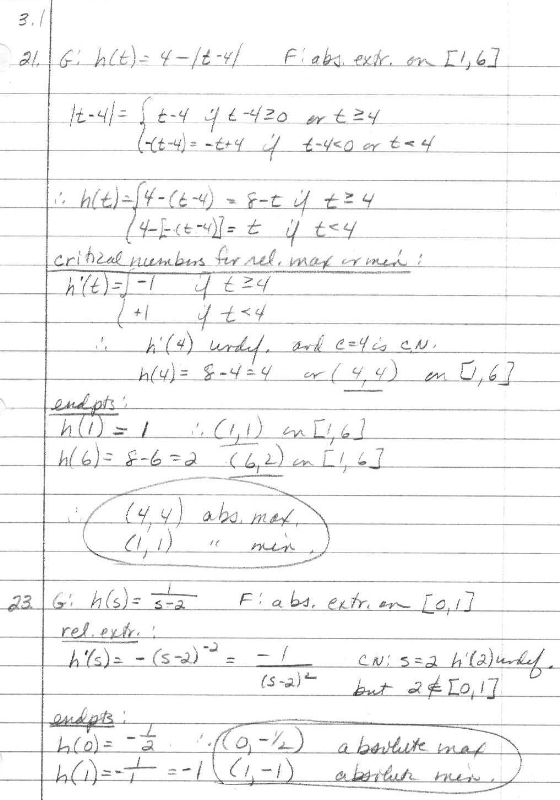 3.1
21. G: h(t) = 4 - |t-4|   F: abs. extr. on [1,6]
|t-4| = { t-4 if t-4≥0 or t≥4
{ -(t-4) = -t+4 if t-4<0 or t<4
∴ h(t) = { 4-(t-4) = 8-t if t≥4
{ 4-[-(t-4)] = t if t<4
critical numbers for rel. max or min:
h'(t) = { -1 if t≥4
{ +1 if t<4
∴ h'(4) undef. and c=4 is C.N.
h(4) = 8-4 = 4 or (4,4) on [1,6]
endpts:
h(1) = 1 ∴ (1,1) on [1,6]
h(6) = 8-6 = 2 (6,2) on [1,6]
∴ (4,4) abs. max.
(1,1) " min.
23. G: h(s) = 1/(s-2)   F: abs. extr. on [0,1]
rel. extr.:
h'(s) = -(s-2)^-2 = -1/(s-2)^2   CN: s=2 h'(2) undef.
but 2∉[0,1]
endpts:
h(0) = -1/2 ∴ (0,-1/2) absolute max
h(1) = -1/1 = -1 (1,-1) absolute min.